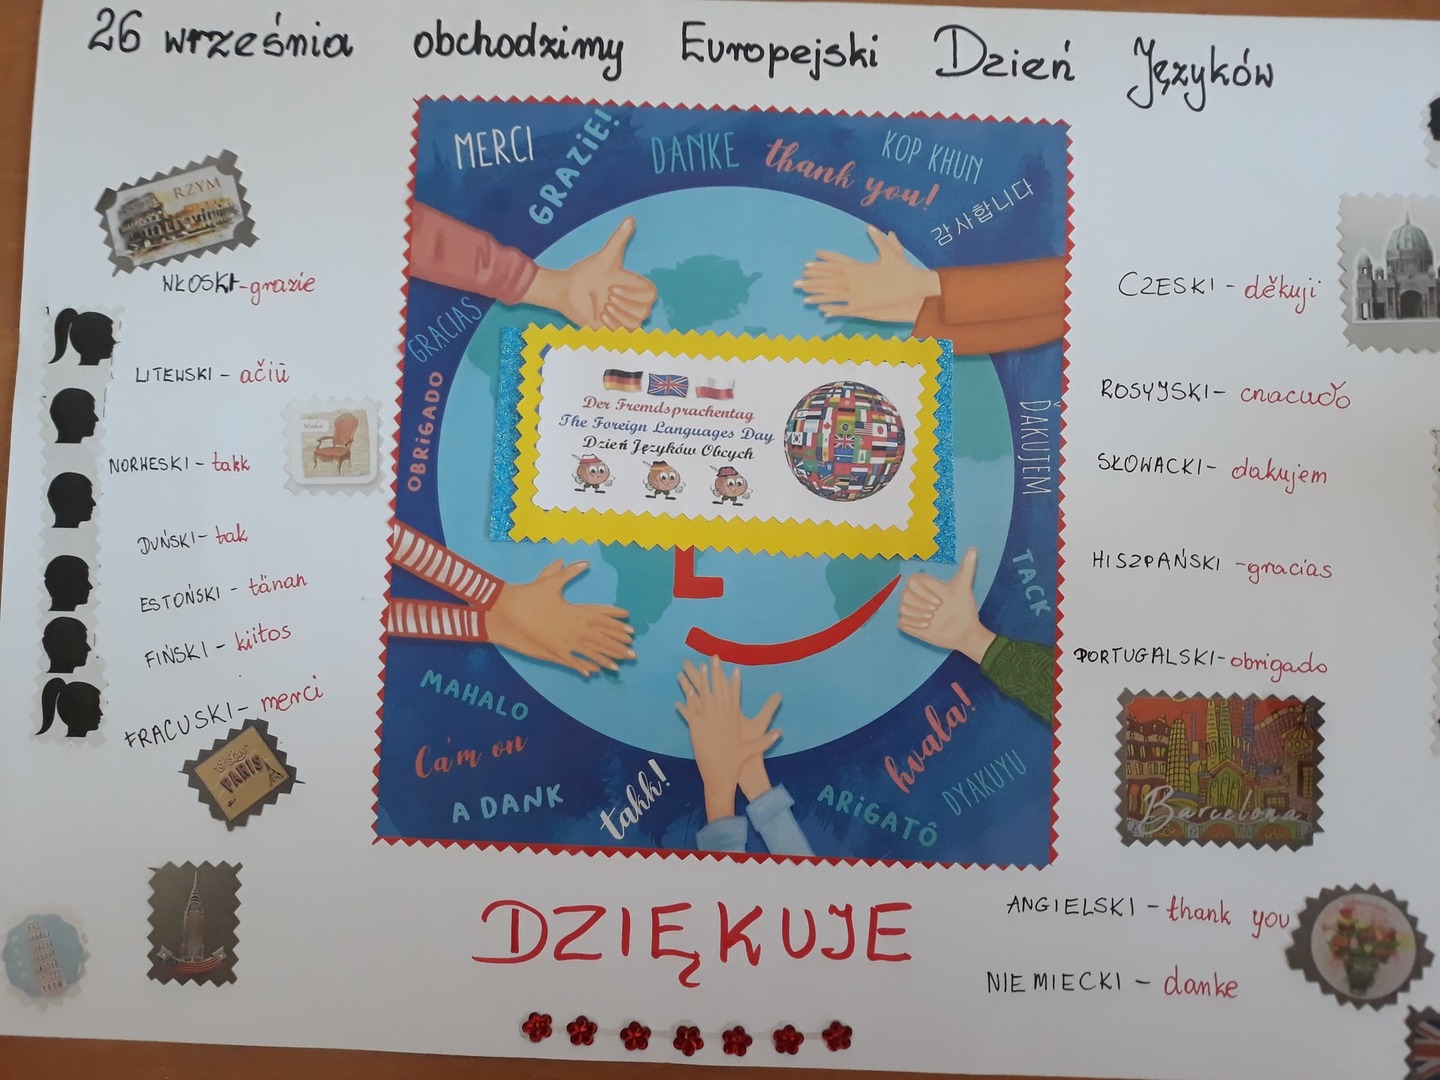 26 września obchodzimy Europejski Dzień Języków
RZYM
WŁOSKI-grazie
LITEWSKI - ačiū
NORWESKI - takk
DUŃSKI - tak
ESTOŃSKI - tänan
FIŃSKI - kiitos
FRACUSKI - merci
PARIS
MERCI
GRAZIE!
DANKE
thank you!
KOP KHUN
감사합니다
GRACIAS
OBRIGADO
ĎAKUJEM
TACK
Der Fremdsprachentag
The Foreign Languages Day
Dzień Języków Obcych
MAHALO
Cám on
A DANK
takk!
ARIGATÔ
hvala!
DYAKUYU
CZESKI - děkuji
ROSYJSKI - cnacuδo
SŁOWACKI - dakujem
HISZPAŃSKI - gracias
PORTUGALSKI - obrigado
Barcelona
DZIĘKUJE
ANGIELSKI - thank you
NIEMIECKI - danke